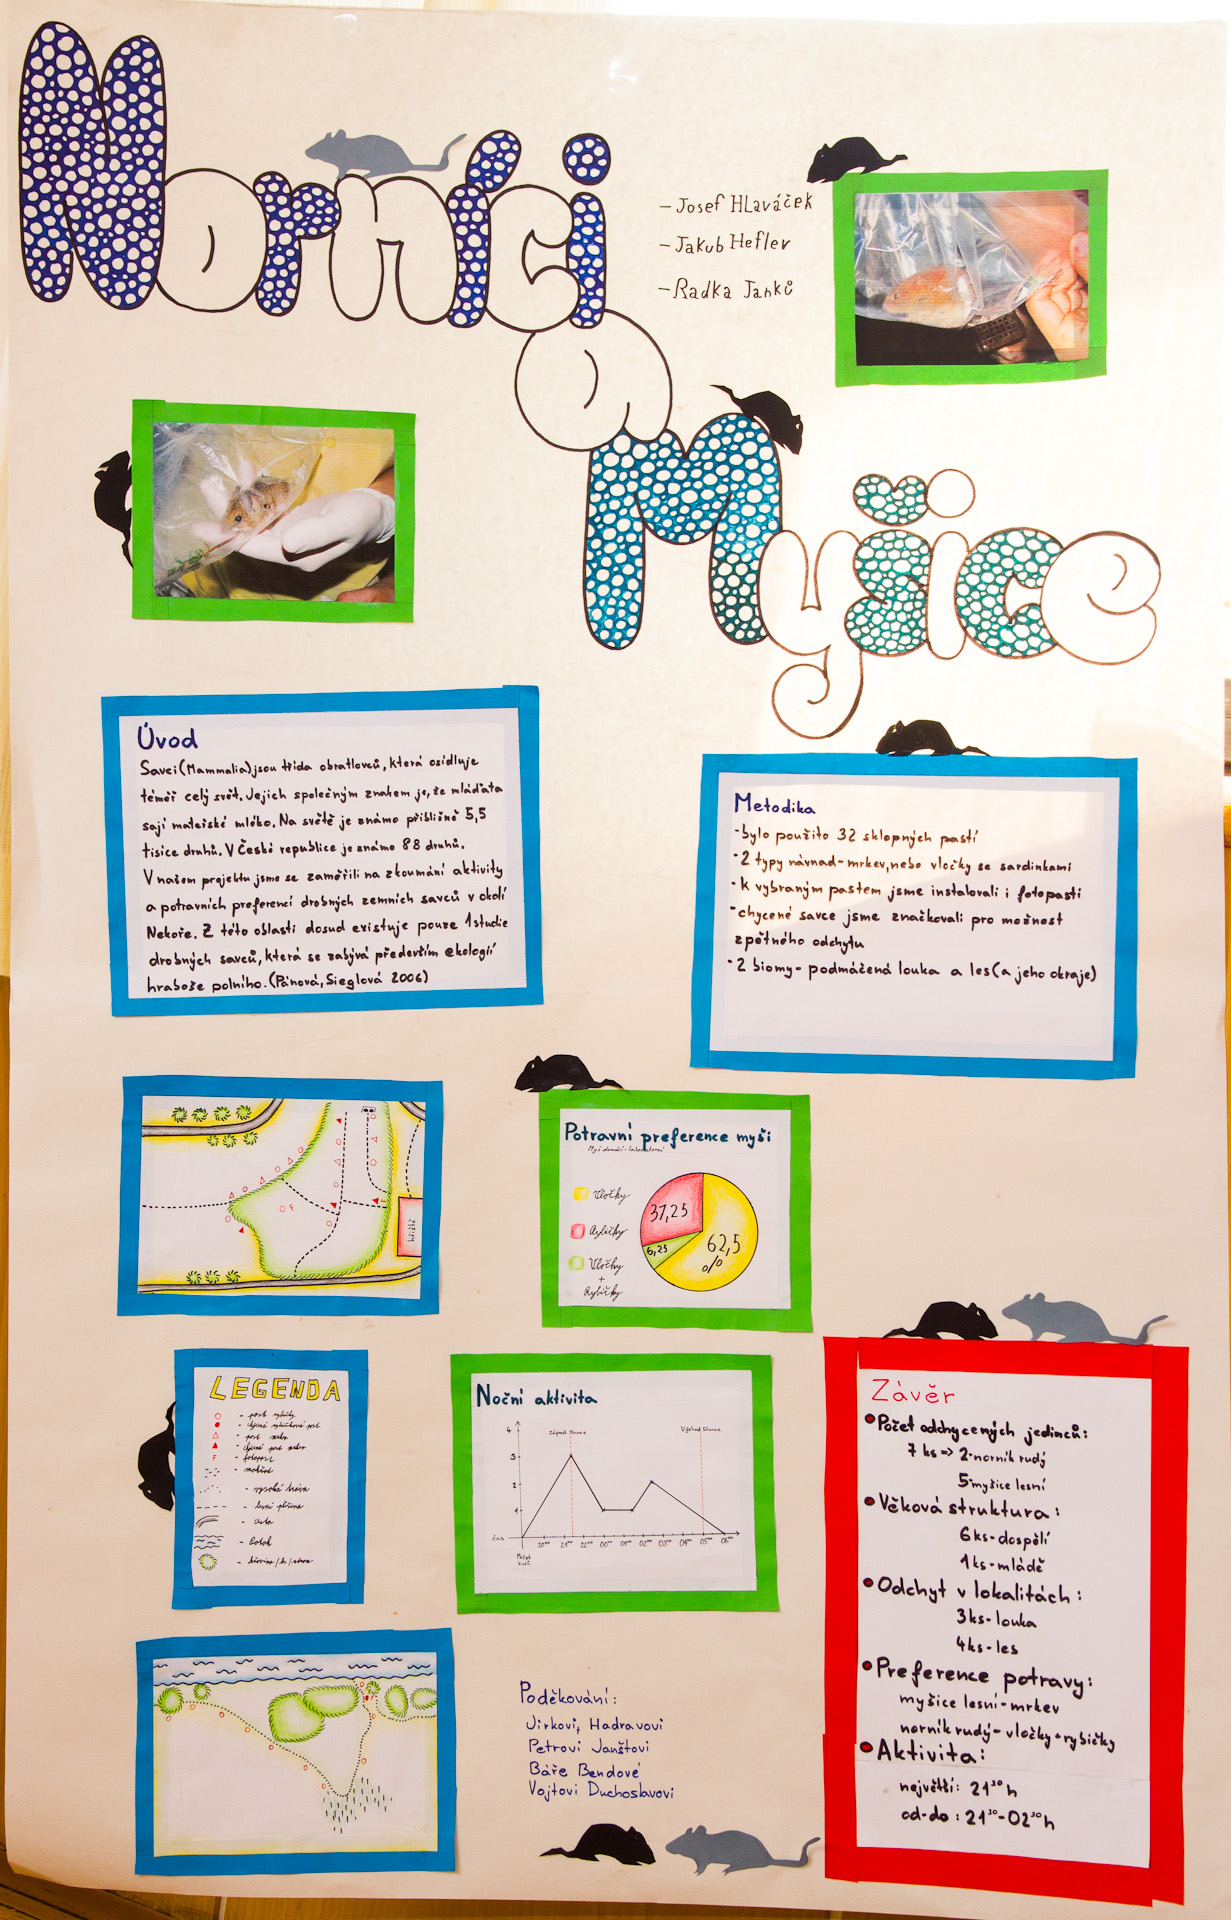 Norníci
a
Myšice
- Josef Hlaváček
- Jakub Hefler
- Radka Janků
Úvod
Savci (Mammalia) jsou třída obratlovců, která osídluje
téměř celý svět. Jejich společným znakem je, že mláďata
sají mateřské mléko. Na světě je známo přibližně 5,5
tisíce druhů. V České republice je známo 88 druhů.
V našem projektu jsme se zaměřili na zkoumání aktivity
a potravních preferencí drobných zemních savců v okolí
Nekoře. Z této oblasti dosud existuje pouze 1 studie
drobných savců, která se zabývá především ekologií
hraboše polního. (Pánová, Sieglová 2006)
Metodika
- bylo použito 32 sklopných pastí
- 2 typy návnad - mrkev, nebo vločky se sardinkami
- k vybraným pastem jsme instalovali i fotopasti
- chycené savce jsme značkovali pro možnost
zpětného odchytu
- 2 biomy - podmáčená louka a les (a jeho okraje)
hřiště
Potravní preference myši
Myš domácí - laboratorní
Vločky
Rybičky
Vločky
+
Rybičky
37,25
6,25
62,5
%
LEGENDA
- past rybičky
- past mrkev
- fotopast
- vysoká tráva
- lesní pěšina
- cesta
- potok
Noční aktivita
Západ Slunce
Východ Slunce
4
3
2
1
čas
20⁰⁰ 21⁰⁰ 22⁰⁰ 00⁰⁰ 01⁰⁰ 02⁰⁰ 03⁰⁰ 04⁰⁰ 05⁰⁰ 06⁰⁰
Počet
kusů
Závěr
Počet odchycených jedinců:
7 ks => 2-norník rudý
5-myšice lesní
Věková struktura:
6ks-dospělí
1ks-mládě
Odchyt v lokalitách:
3ks-louka
4ks-les
Preference potravy:
myšice lesní-mrkev
norník rudý-vločky+rybičky
Aktivita:
největší: 21³⁰h
od-do: 21³⁰-02³⁰h
Poděkování:
Jirkovi, Hadravovi
Petrovi Janštovi
Báře Bendové
Vojtovi Duchoslavovi